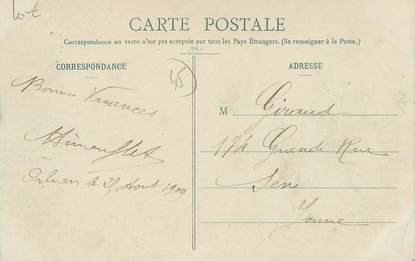 Lot
CARTE POSTALE
Correspondance au verso n'est pas acceptée par tous les Pays Étrangers. (Se renseigner à la Poste.)
CORRESPONDANCE
45
Bonnes Vacances
Orléans 25 Août 1909
ADRESSE
M Giraud
174 Grande Rue
Sens
Yonne